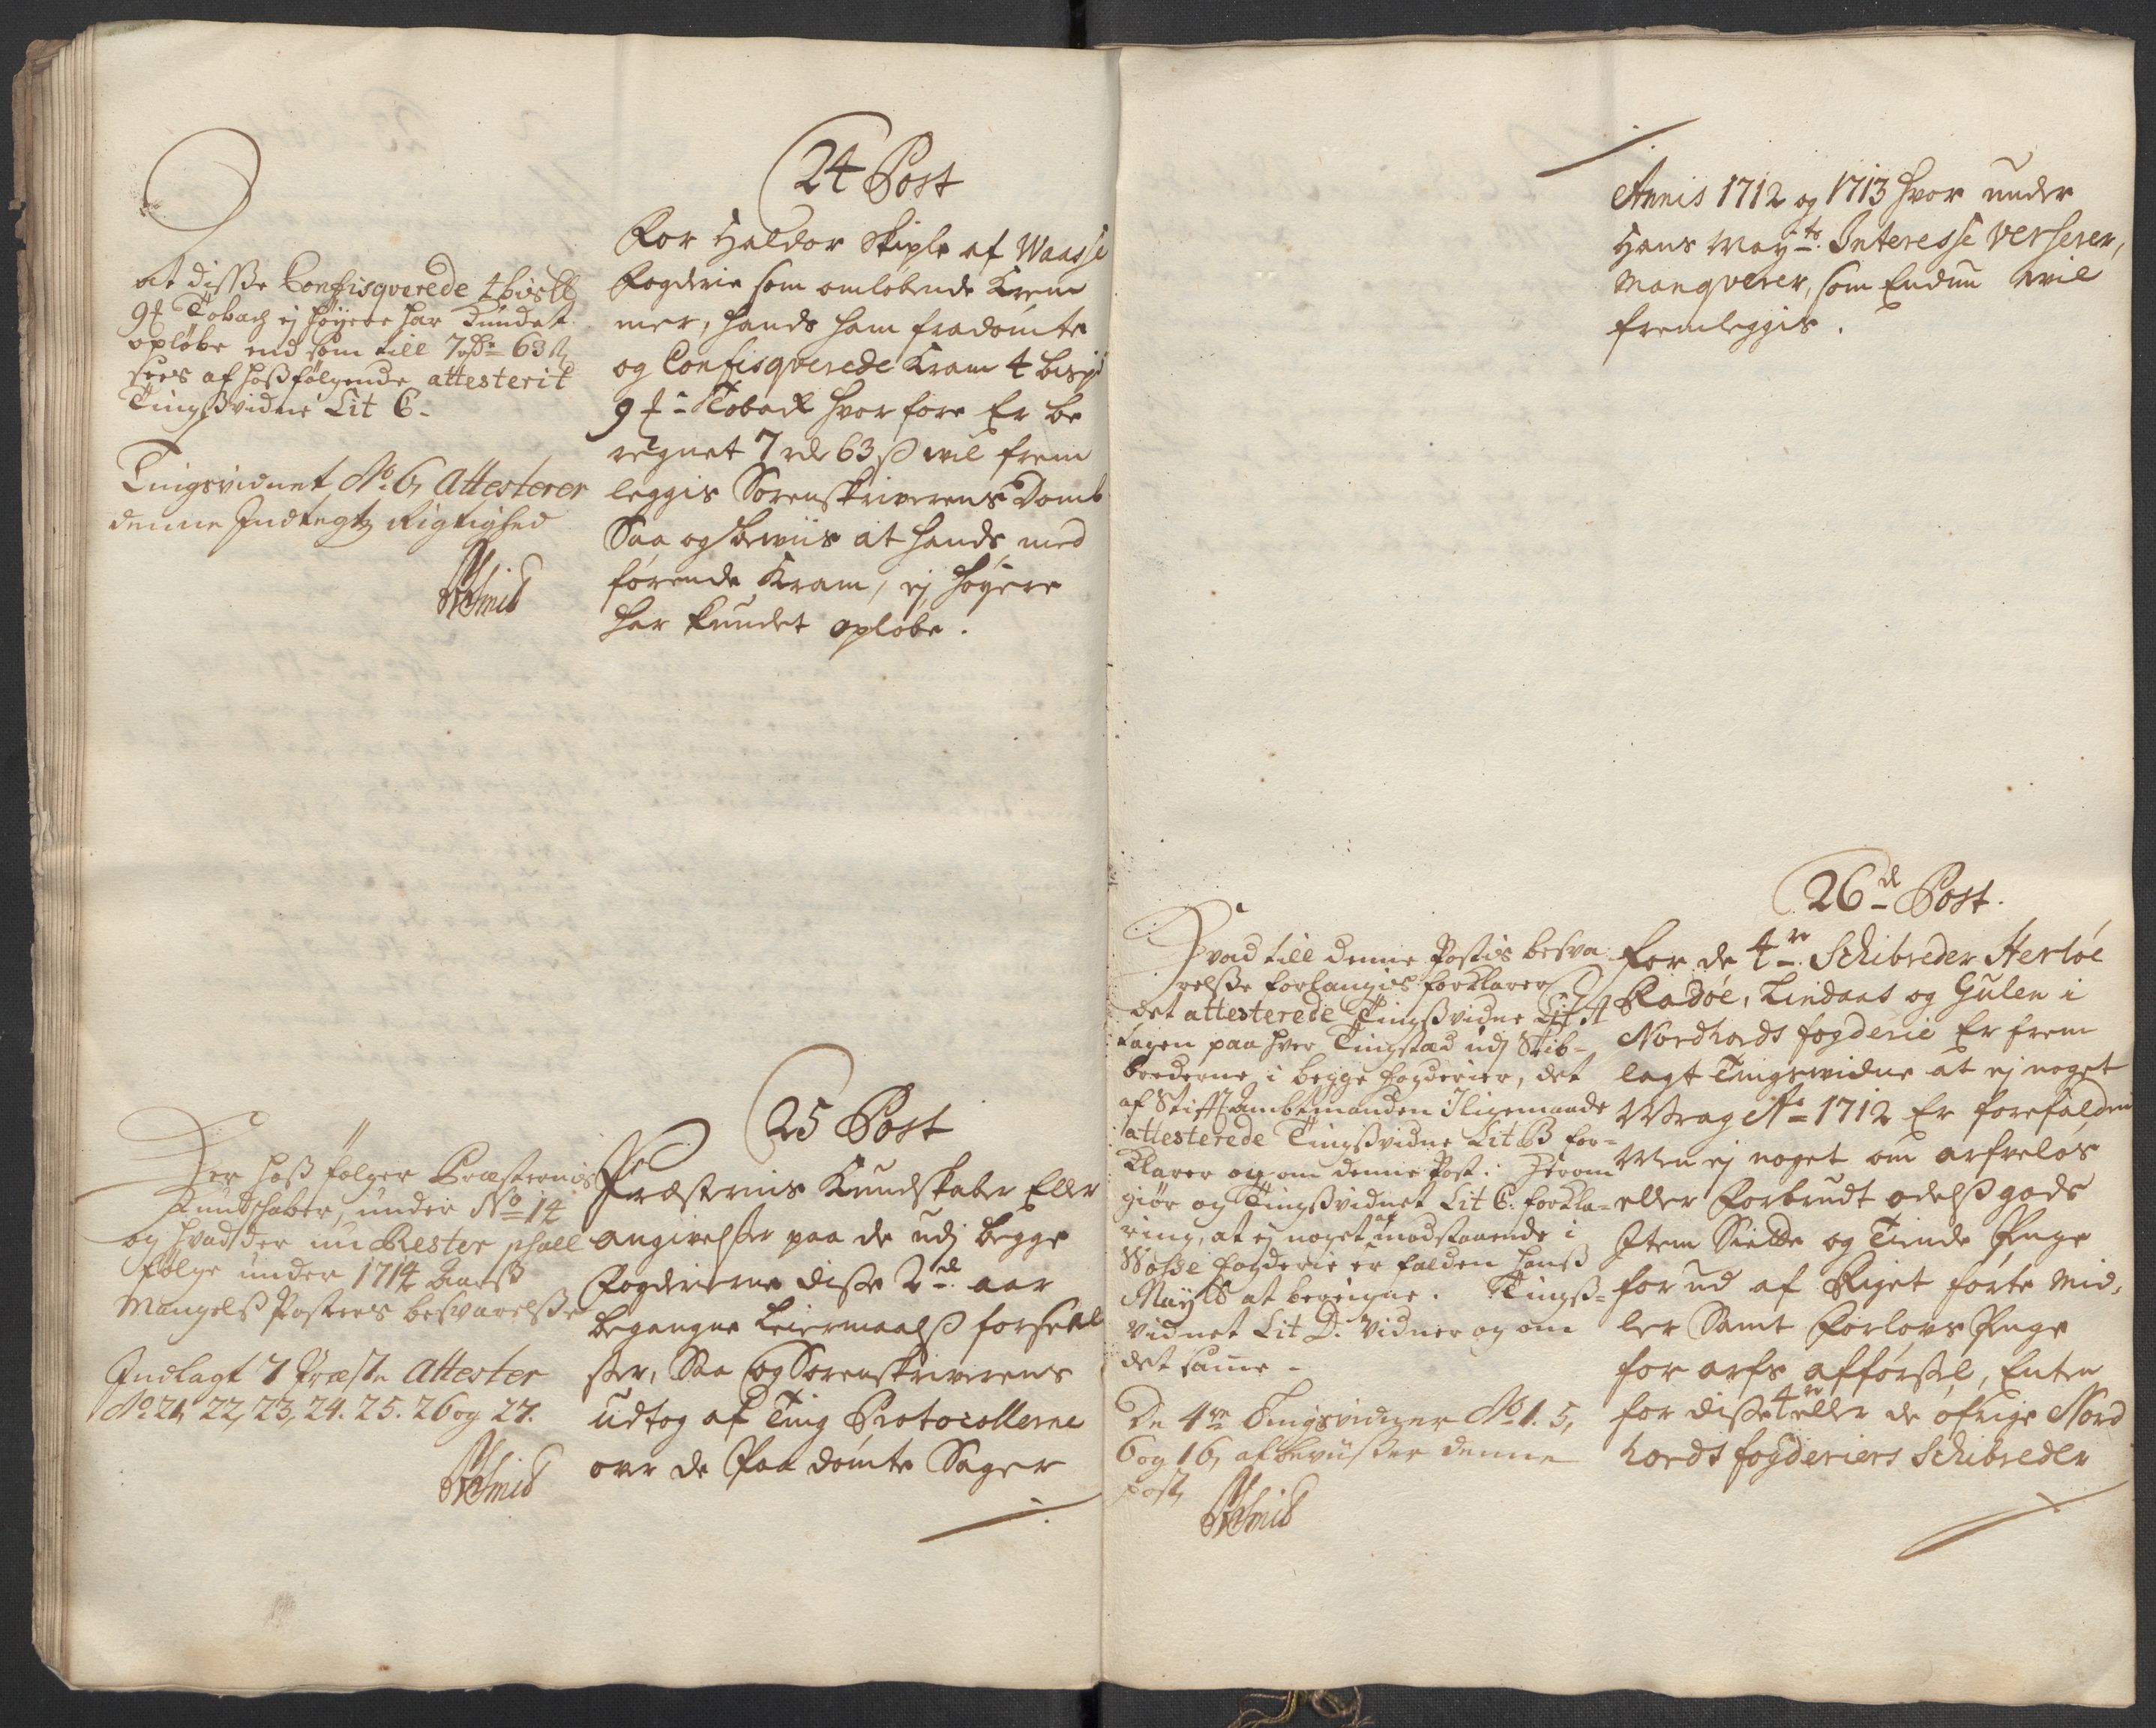 24 Post
For Haldor Skiple af Waasse
Fogderie som omløbende Krem
mer, hands ham fradømte
og Confisqverede Kram 4 bis℔
9 ℔ Toback hvorfore Er be
regnet 7 rd 63 ß wil frem
leggis Sorenskriverens Domb
Saa og bewiis at hands med
førende Kram, ej høyere
har kundet opløbe.
at disse Confisqverede 4 bis℔
9 ℔ Toback ej høyere har kundet
opløbe end som till 7 rdr 63 ß
sees af hoßfølgende attesterit
Tingßvidne Lit C.
Tingsvidnet No. 6, Attesterer
denne Indtegtz Rigtighed
25 Post
Præsternis Kundskaber Eller
angivelser paa de udj begge
Fogderierne disse 2de aar
begangne Leiermaalß forseel
ser, Saa og Sorenskriverens
Udtog af Ting Protocollerne
over de Paa dømte Sager
Her hoß følger Præsternis
Kundschaber, under No 14
og hvad der nu Rester schall
følge under 1714 Aarß
Mangelß Posters besvarelße
Indlagt 7 Præste Attester
No. 21, 22, 23, 24. 25. 26 og 27.
Annis 1712 og 1713 hvor under
Hans Mayts. Interesse Verserer,
Manqverer, som Endnu wil
fremleggis.
26de Post.
For de 4re Schibreder Herløe
Radøe, Lindaas og Gulen i
Nordhords fogderie Er frem
lagt Tingswidne at ej noget
Wrag Ao 1712 Er forefalden
Men ej noget om arfveløs
eller Forbrudt odelß gods
Item Siette og Tiende Penge
for ud af Riget førte Mid,
ler Samt Forlovs Penge
for arfs afførsel, Enten
for disse 4re eller de øfrige Nord
hords fogderiers Schibreder
Hvad till denne Postis besva
relße forlangis forklarer
det attesterede Tingßvidne Lit A
tagen paa hver Tingstæd udj Skib-
brederne i begge fogderier, det
af Stifft Ambtmanden Iligemaade
attesterede Tingßvidne Lit B for-
klarer og om denne Post. Herom
giør og Tingßvidnet Lit C. forkla-
ring, at ej noget af modstaaende i
Woße fogderie er falden Hanß
Mayts at beregne. Tingß-
vidnet Lit D. Vidner og om
det samme.
De 4re Tingsvidner No 1. 5,
6 og 16, afbevißer denne
post,